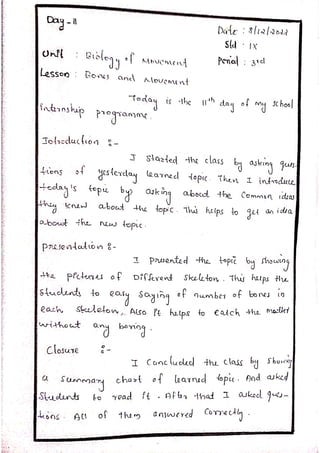 Day - 11
Date : 8/12/2022
Std : IX
Unit : Biology of Movement
Period : 3rd
Lesson : Bones and Movement
"Today is the 11th day of my school
internship programme.
Introduction :-
I started the class by asking ques-
tions of yesterday learned topic. Then I introduce
today's topic by asking about the common ideas
they knew about the topic. This helps to get an idea
about the new topic.
presentation :-
I presented the topic by showing
the pictures of Different skeleton. This helps the
students to easy saying of number of bones in
each skeleton, Also it helps to catch the matter
without any boring.
Closure :-
I Concluded the class by showing
a summary chart of learned topic. And asked
students to read it. After that I asked ques-
tions. All of them answered correctly.